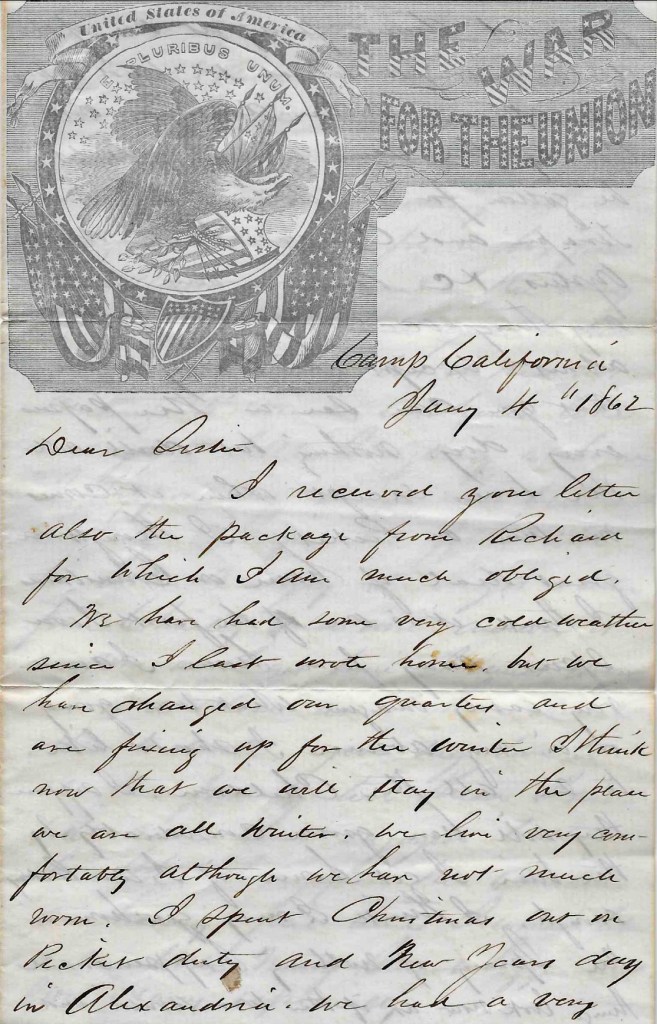 United States of America
E PLURIBUS UNUM.
THE WAR
FOR THE UNION
Camp California
Jany 4" 1862
Dear Sister
I received your letter
also the package from Richard
for which I am much obliged.
We have had some very cold weather
since I last wrote home, but we
have changed our quarters and
are fixing up for the winter I think
now that we will stay in the place
we are all winter. We live very com-
fortably although we have not much
room. I spent Christmas out on
Picket duty and New Years day
in Alexandria. We had a very